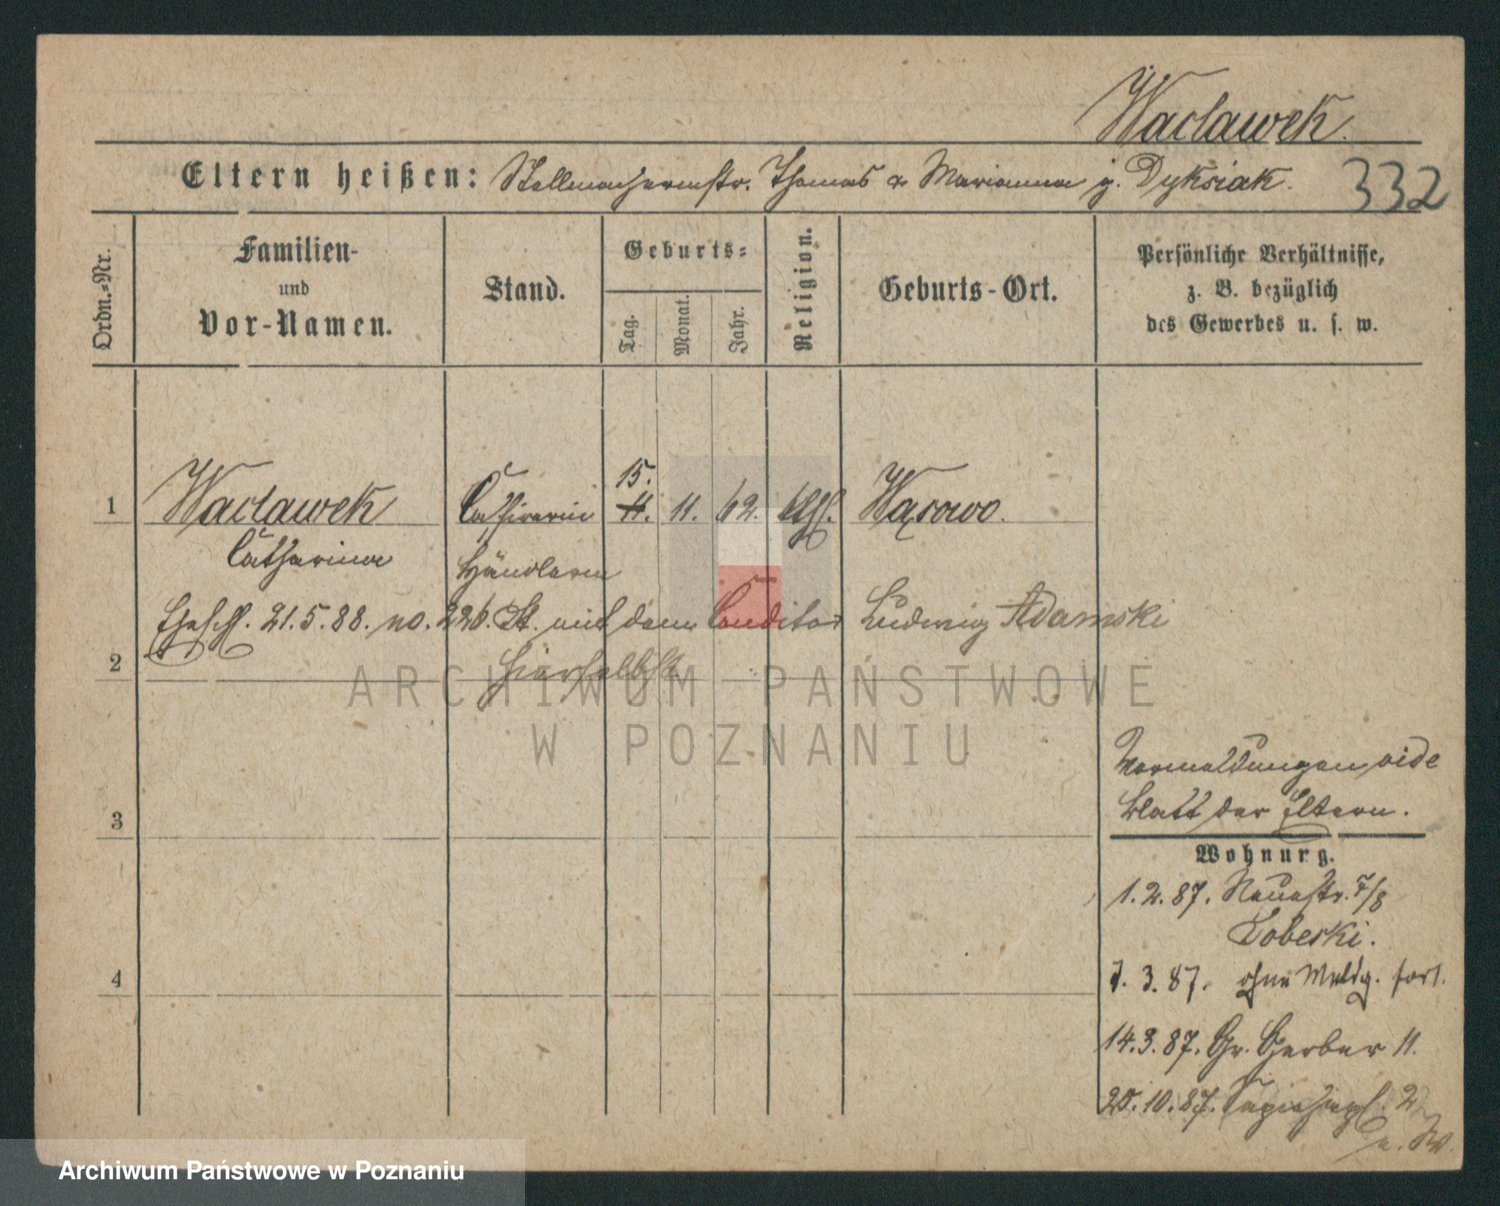 Wacławek.
Eltern heißen: Stellmachermstr. Thomas & Marianna g. Dyksiak.
332
Ordn.-Nr.
Familien-
und
Vor-Namen.
Stand.
Geburts-
Tag.
Monat.
Jahr.
Religion.
Geburts-Ort.
Persönliche Verhältnisse,
z. B. bezüglich
des Gewerbes u. s. w.
15.
1 Wacławek Cassirerin 11. 11. 62. kth. Wąsowo.
Catharina Händlerin
Eheschl. 21.5.88. no. 226. St. mit dem Conditor Ludwig Adamski
2 hierselbst
ARCHIWUM PAŃSTWOWE
W POZNANIU
Vermeldungen vide
Blatt der Eltern.
3
Wohnung.
1.2.87. Neuestr. 7/8
Sobeski.
4
7.3.87. ohne Meldg. fort.
14.3.87. Gr. Gerber 11.
25.10.87. Sapiehapl. 2
Archiwum Państwowe w Poznaniu